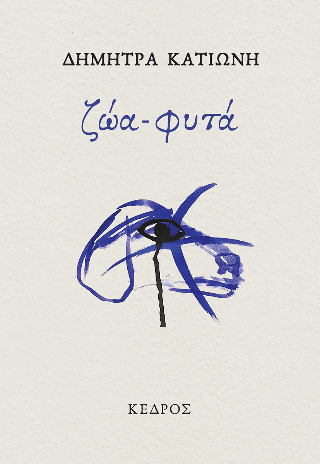 ΔΗΜΗΤΡΑ ΚΑΤΙΩΝΗ
ζώα-φυτά
ΚΕΔΡΟΣ